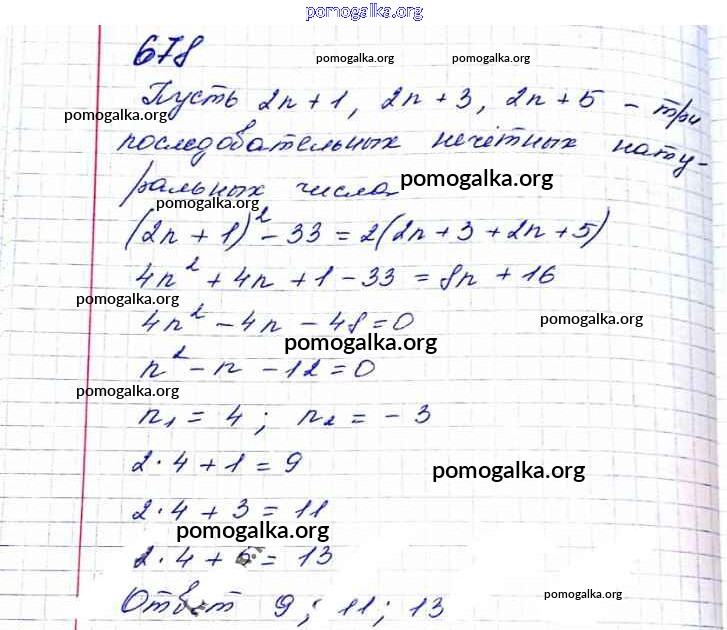 pomogalka.org
678
pomogalka.org pomogalka.org
Пусть 2n + 1, 2n + 3, 2n + 5 – три
pomogalka.org
последовательных нечётных нату-
ральных числа pomogalka.org
pomogalka.org
(2n + 1)² – 33 = 2(2n + 3 + 2n + 5)
4n² + 4n + 1 – 33 = 8n + 16
pomogalka.org
4n² – 4n – 48 = 0 pomogalka.org
pomogalka.org
n² – n – 12 = 0
pomogalka.org
n₁ = 4 ; n₂ = – 3
2 · 4 + 1 = 9
pomogalka.org
2 · 4 + 3 = 11
pomogalka.org
2 · 4 + 5 = 13
Ответ 9 ; 11 ; 13
pomogalka.org